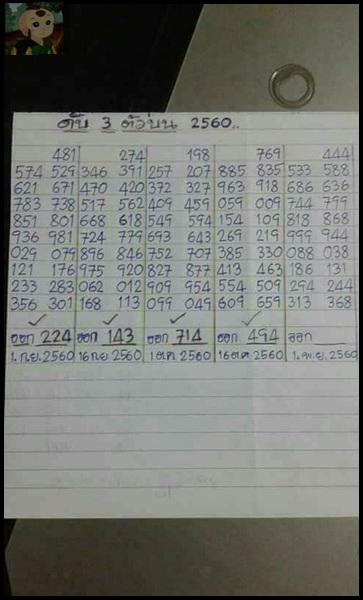 ดับ 3 ตัวบน 2560..
481 274 198 769 444
574 529 346 391 257 207 885 835 533 588
621 671 470 420 372 327 963 918 686 636
783 738 517 562 409 459 059 009 744 799
851 801 668 618 549 594 154 109 818 868
936 981 724 779 693 643 269 219 999 944
029 079 896 846 752 707 385 330 088 038
121 176 975 920 827 877 413 463 186 131
233 283 062 012 909 954 554 509 294 244
356 301 168 113 099 049 609 659 313 368
ออก 224 ออก 143 ออก 714 ออก 494 ออก
1.ก.ย.2560 16 ก.ย 2560 1 ต.ค 2560 16 ต.ค 2560 1.พ.ย.2560